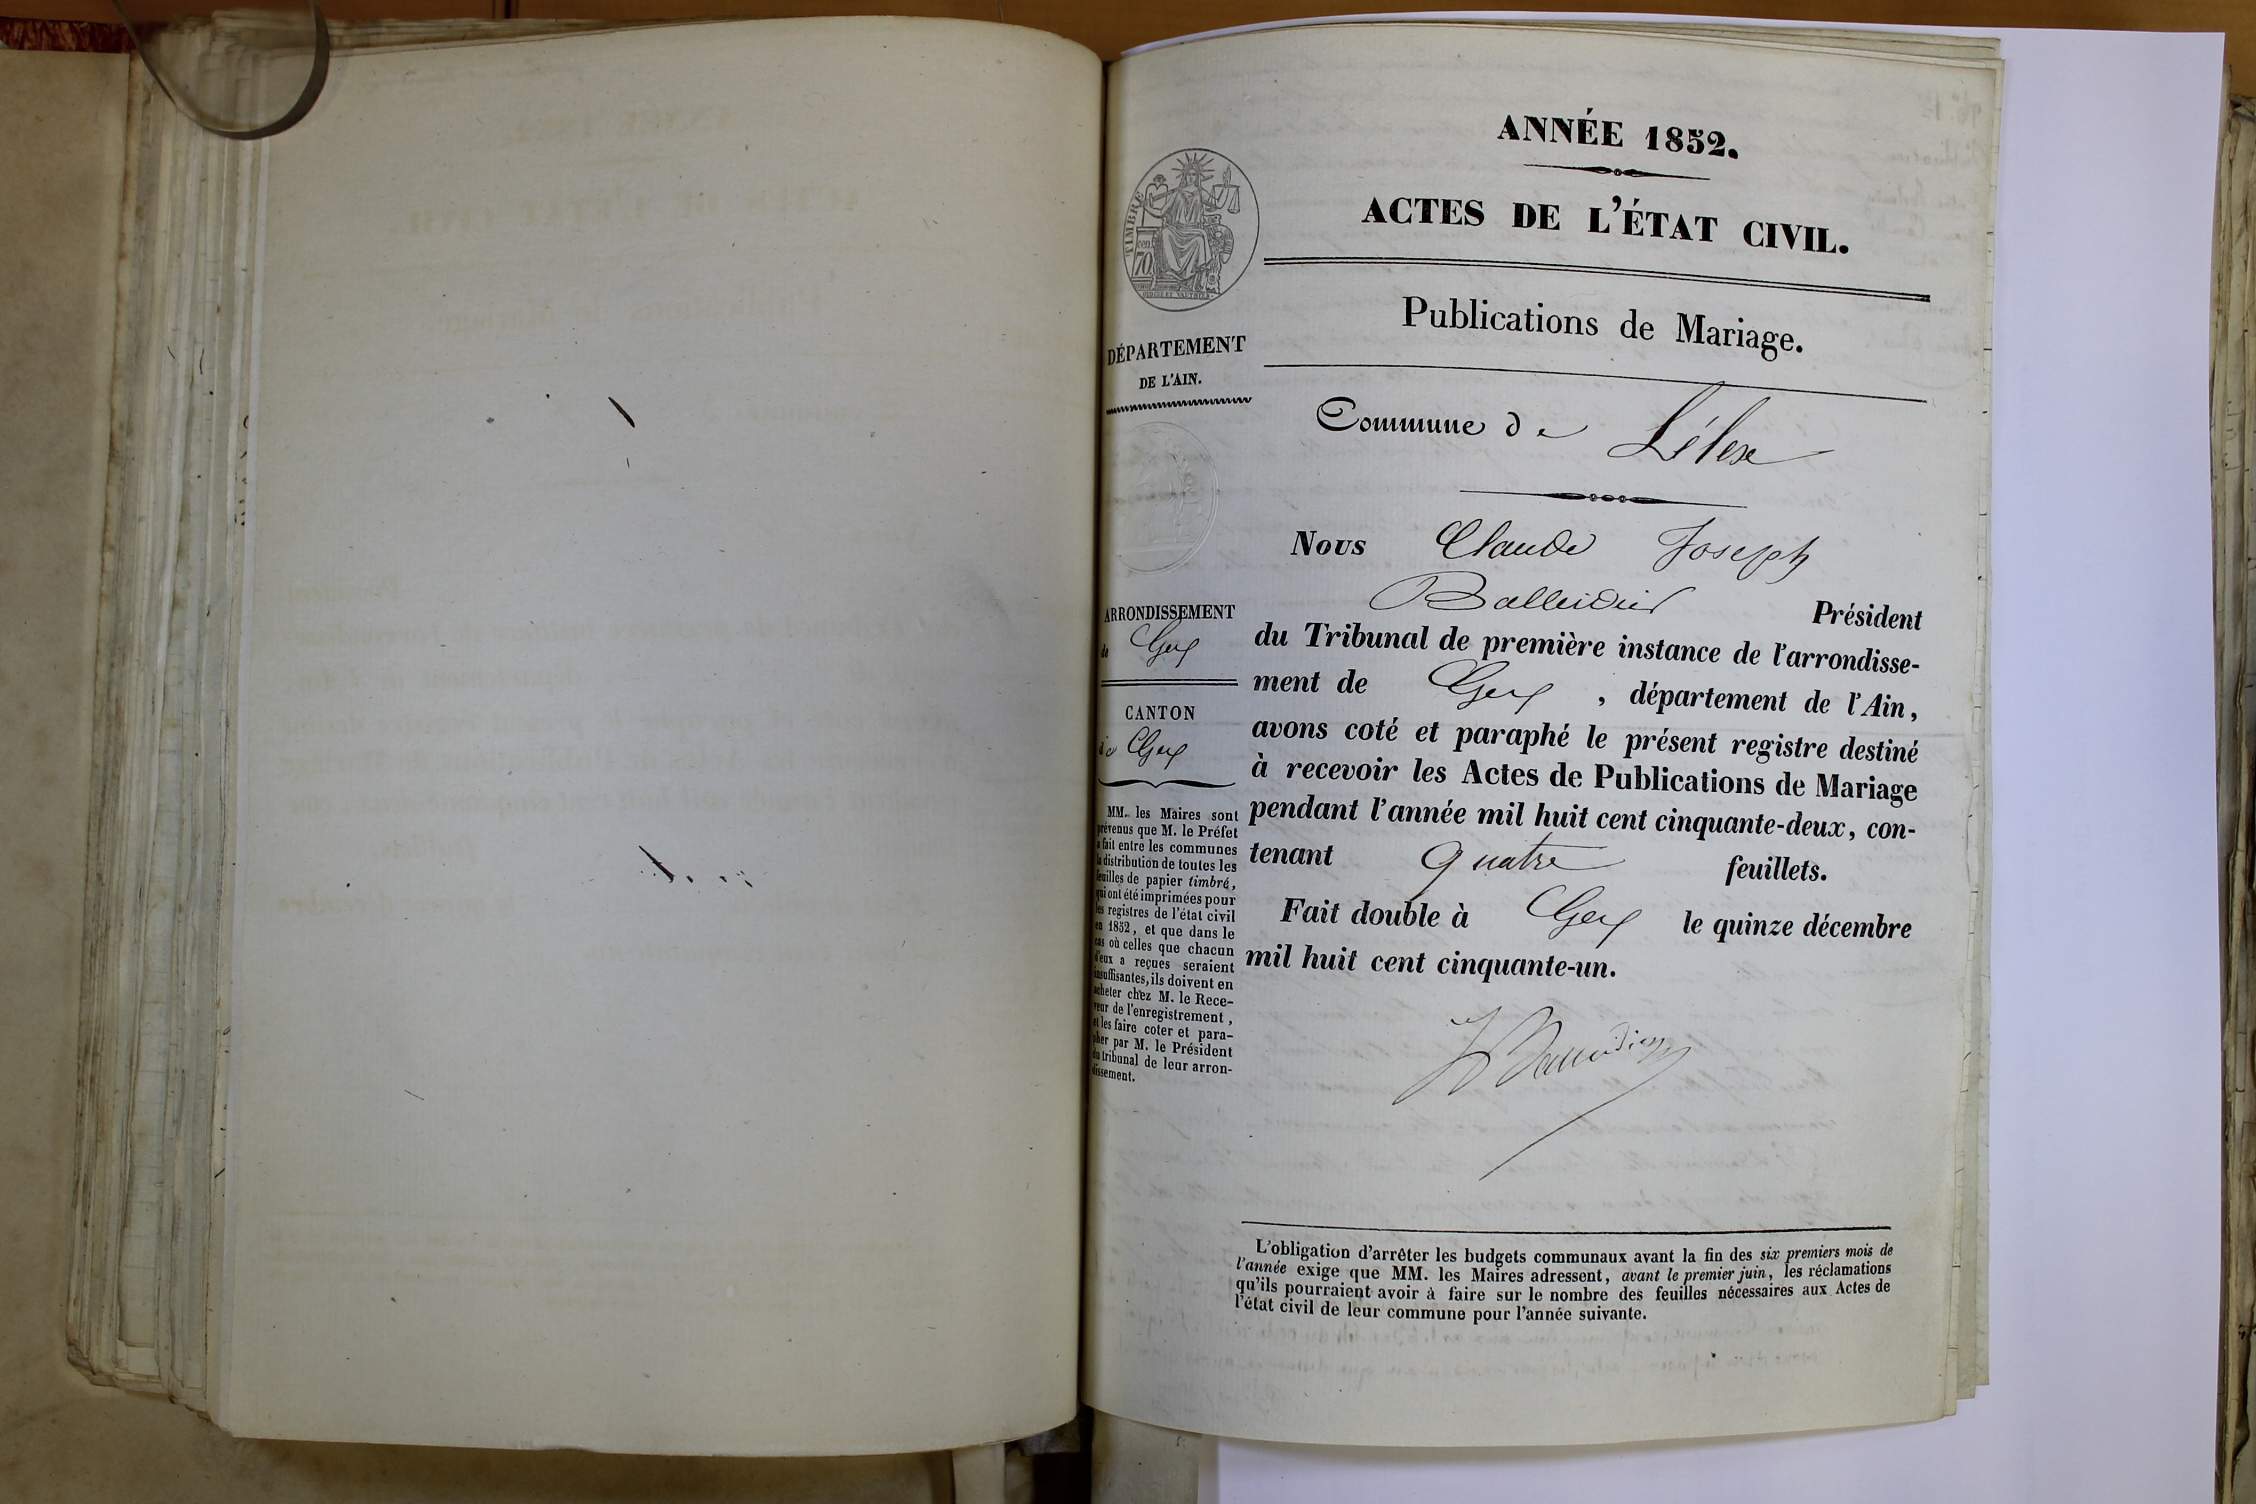 ANNÉE 1852.
ACTES DE L'ÉTAT CIVIL.
Publications de Mariage.
TIMBRE
cen.
70
DÉPARTEMENT
DE L'AIN.
Commune de Lélex
ARRONDISSEMENT
de Gex
CANTON
de Gex
MM. les Maires sont
prévenus que M. le Préfet
a fait entre les communes
la distribution de toutes les
feuilles de papier timbré,
qui ont été imprimées pour
les registres de l'état civil
en 1852, et que dans le
cas où celles que chacun
d'eux a reçues seraient
insuffisantes, ils doivent en
acheter chez M. le Rece-
veur de l'enregistrement,
et les faire coter et para-
pher par M. le Président
du tribunal de leur arron-
dissement.
Nous Claude Joseph
Balleidier Président
du Tribunal de première instance de l'arrondisse-
ment de Gex, département de l'Ain,
avons coté et paraphé le présent registre destiné
à recevoir les Actes de Publications de Mariage
pendant l'année mil huit cent cinquante-deux, con-
tenant quatre feuillets.
Fait double à Gex le quinze décembre
mil huit cent cinquante-un.
L'obligation d'arrêter les budgets communaux avant la fin des six premiers mois de
l'année exige que MM. les Maires adressent, avant le premier juin, les réclamations
qu'ils pourraient avoir à faire sur le nombre des feuilles nécessaires aux Actes de
l'état civil de leur commune pour l'année suivante.